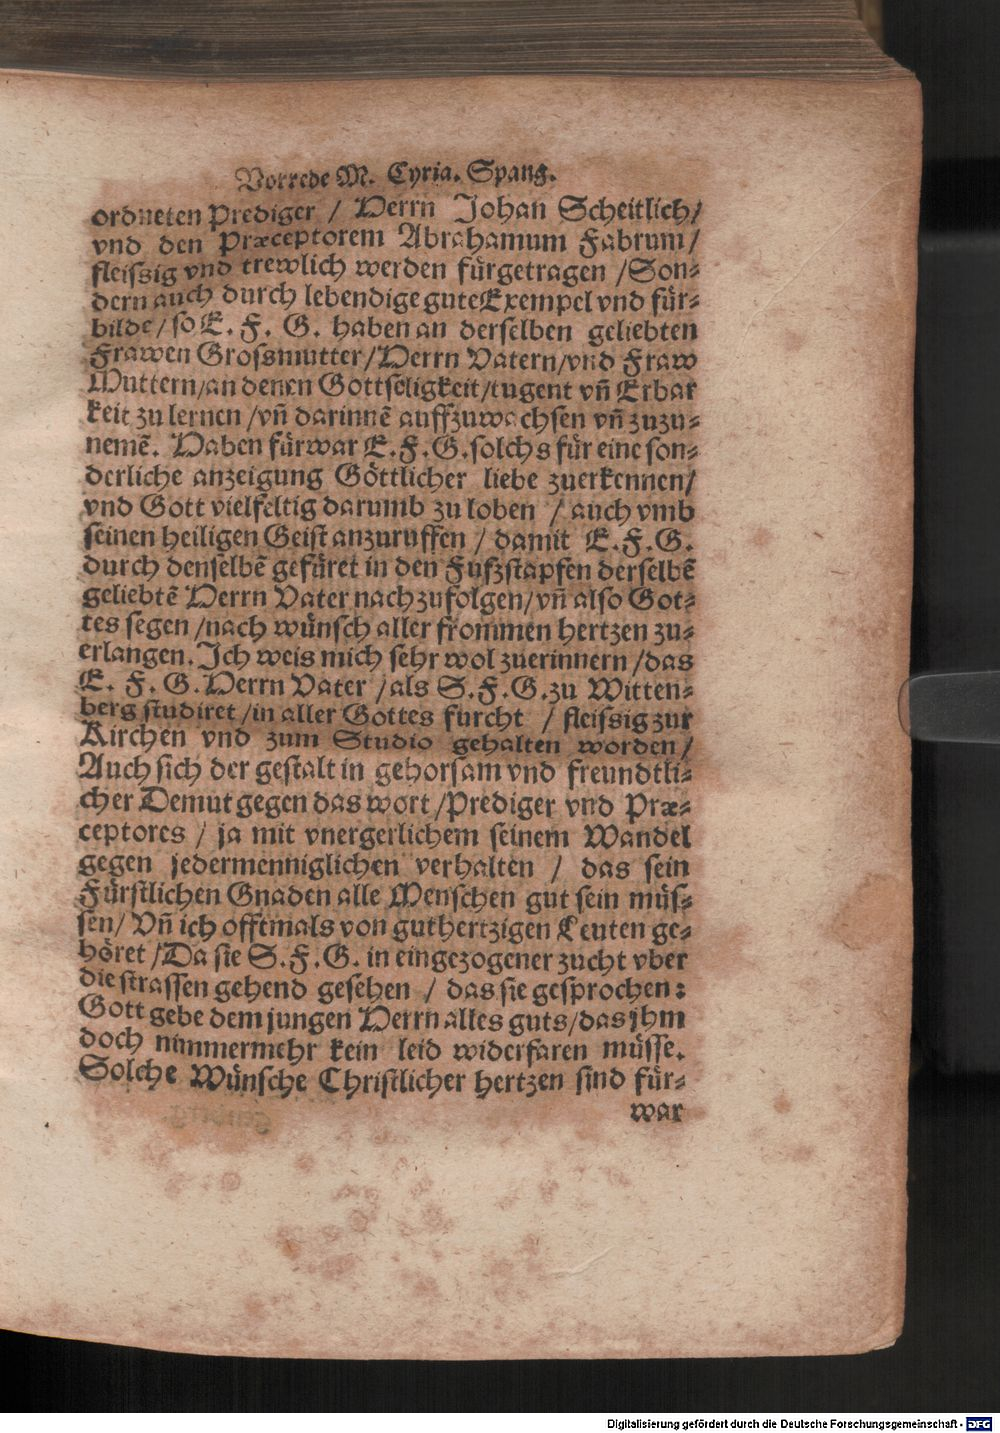 Vorrede M. Cyria. Spang.
ordneten Prediger / Herrn Johan Scheitlich/
vnd den Præceptorem Abrahamum Fabrum/
fleissig vnd trewlich werden fürgetragen /Son-
dern auch durch lebendige gute Exempel vnd für-
bilde/ so E. F. G. haben an derselben geliebten
Frawen Grossmutter/Herrn Vatern/vnd Fraw
Muttern/an denen Gottseligkeit/tugent vñ Erbar
keit zu lernen /vñ darinnẽ auffzuwachsen vñ zuzu-
nemẽ. Haben fürwar E.F.G.solchs für eine son-
derliche anzeigung Göttlicher liebe zuerkennen/
vnd Gott vielfeltig darumb zu loben / auch vmb
seinen heiligen Geist anzuruffen / damit E.F.G.
durch denselbẽ gefüret in den Fußstapfen derselbẽ
geliebtẽ Herrn Vater nachzufolgen/vñ also Got-
tes segen /nach wünsch aller frommen hertzen zu-
erlangen. Ich weis mich sehr wol zuerinnern /das
E. F. G. Herrn Vater /als S.F.G.zu Witten-
berg studiret /in aller Gottes furcht / fleissig zur
Kirchen vnd zum Studio gehalten worden/
Auch sich der gestalt in gehorsam vnd freundtli-
cher Demut gegen das wort /Prediger vnd Præ-
ceptores / ja mit vnergerlichem seinem Wandel
gegen jedermenniglichen verhalten / das sein
Fürstlichen Gnaden alle Menschen gut sein müs-
sen/ Vñ ich offtmals von guthertzigen Leuten ge-
höret /Da sie S.F.G. in eingezogener zucht vber
die strassen gehend gesehen / das sie gesprochen:
Gott gebe dem jungen Herrn alles guts/das jhm
doch nimmermehr kein leid widerfaren müsse.
Solche Wünsche Christlicher hertzen sind für-
war
Digitalisierung gefördert durch die Deutsche Forschungsgemeinschaft - DFG